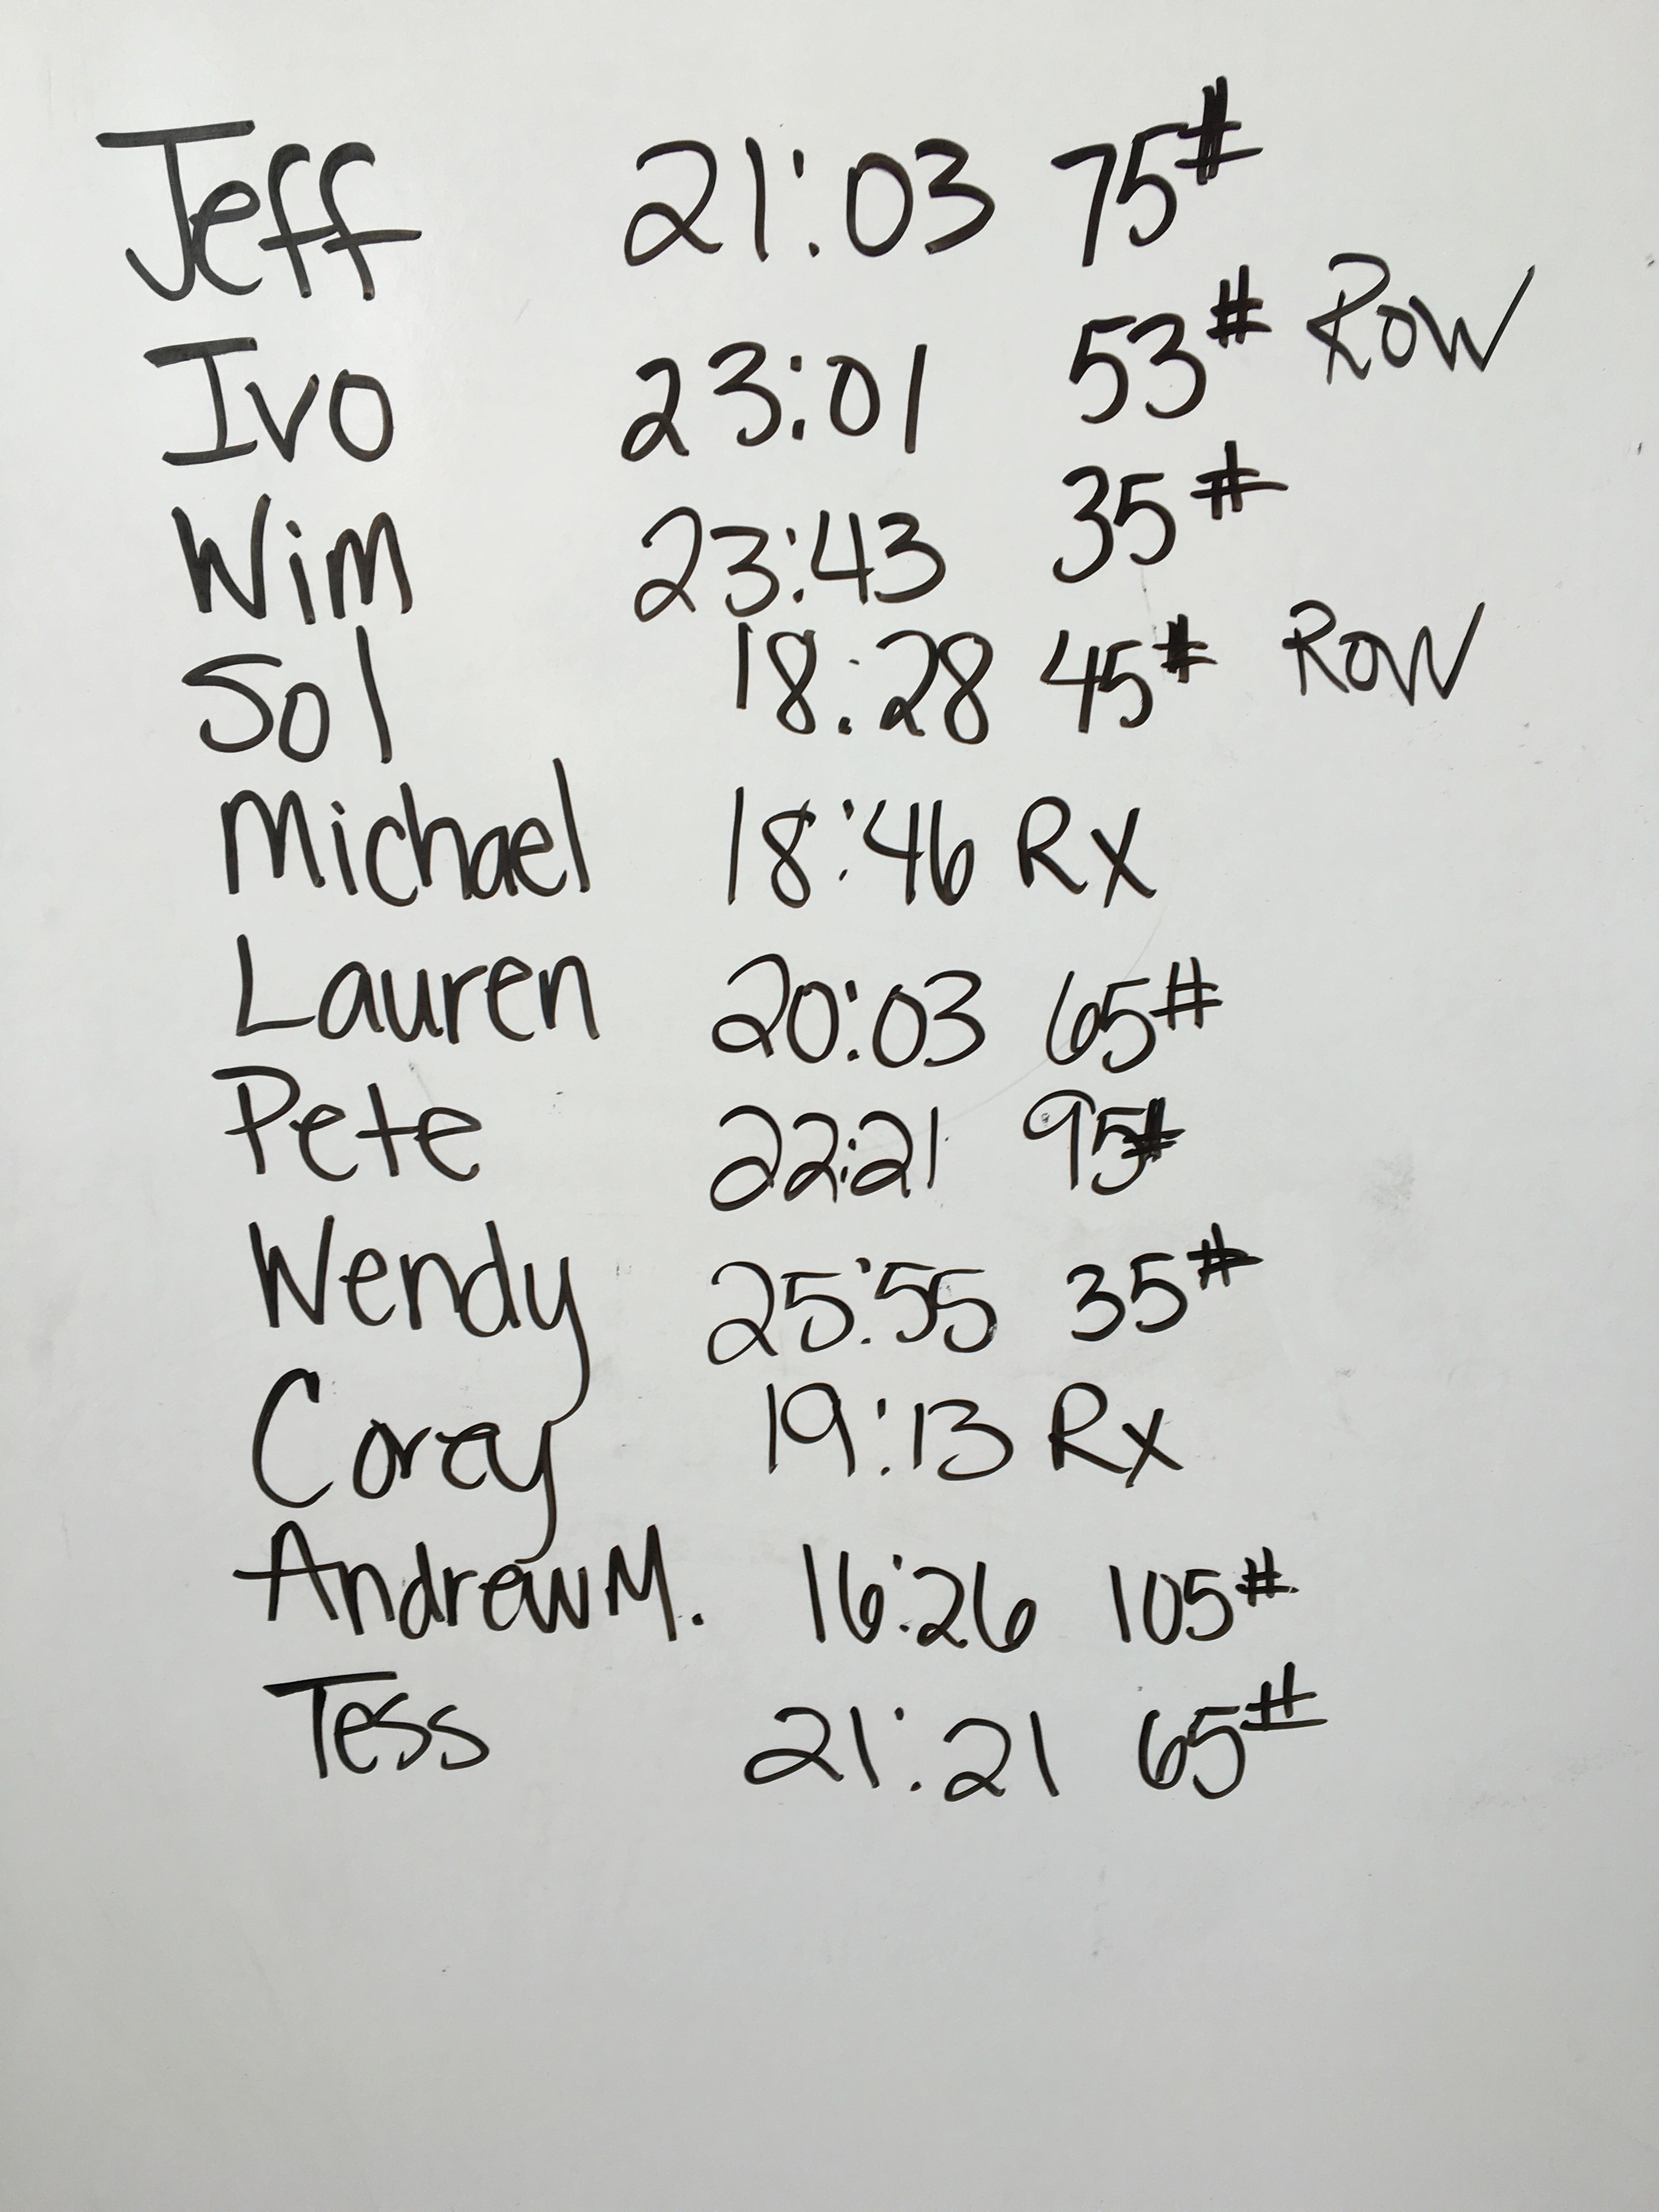 Jeff 21:03 75#
Ivo 23:01 53# Row
Wim 23:43 35#
Sol 18:28 45# Row
Michael 18:46 Rx
Lauren 20:03 65#
Pete 22:21 95#
Wendy 25:55 35#
Corey 19:13 Rx
Andrew M. 16:26 105#
Tess 21:21 65#